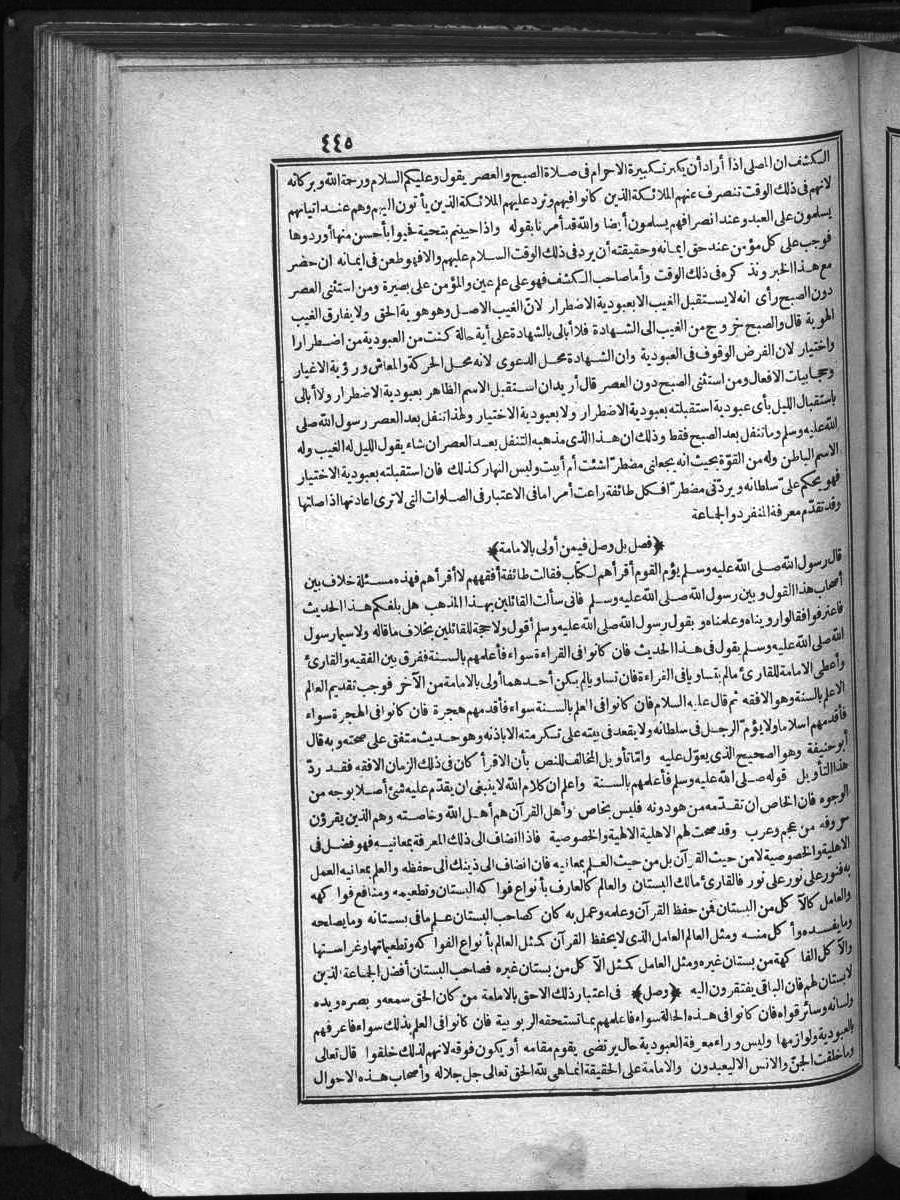 ٤٤٥
الكشف ان المصلى اذا أراد أن يكبر تكبيرة الاحرام فى صلاة الصبح والعصر يقول وعليكم السلام ورحمة الله وبركاته
لانهم فى ذلك الوقت تنصرف عنهم الملائكة الذين كانوا فيهم وترد عليهم الملائكة الذين يأتون اليهم وهم عند اتيانهم
يسلمون على العبد وعند انصرافهم يسلمون أيضا والله قد أمرنا بقوله واذا حييتم بتحية فحيوا بأحسن منها أو ردوها
فوجب على كل مؤمن عند حق ايمانه وحقيقته أن يرد فى ذلك الوقت السلام عليهم والا فهو طعن فى ايمانه ان حضر
مع هذا الخبر وتذكره فى ذلك الوقت وأما صاحب الكشف فهو على علم عين والمؤمن على بصيرة ومن استثنى العصر
دون الصبح رأى انه لا يستقبل الغيب الا بعبودية الاضطرار لان الغيب الاصل وهو هوية الحق ولا يفارق الغيب
الهوية قال والصبح خروج من الغيب الى الشهادة فلا أبالى بالشهادة على أية حالة كنت من العبودية من اضطرارا
واختيار لان الفرض الوقوف فى العبودية وان الشهادة محل الدعوى لانه محل الحركة والمعاش ورؤية الاغيار
وحجابيات الافعال ومن استثنى الصبح دون العصر قال أريد ان استقبل الاسم الظاهر بعبودية الاضطرار ولا أبالى
باستقبال الليل بأى عبودية استقبلته بعبودية الاضطرار ولا بعبودية الاختيار ولهذا تنفل بعد العصر رسول الله صلى
الله عليه وسلم وما تنفل بعد الصبح فقط وذلك ان هذا الذى مذهبه التنفل بعد العصر ان شاء يقول الليل له الغيب وله
الاسم الباطن وله من القوّة بحيث انه يجعلنى مضطرّا شئت أم أبيت وليس النهار كذلك فان استقبلته بعبودية الاختيار
فهو يحكم علىّ سلطانه ويردّنى مضطرّا فكل طائفة راعت أمرا ما فى الاعتبار فى الصلوات التى لا ترى اعادتها اذا صلتها
وقد تقدّم معرفة المنفرد والجماعة
﴿فصل بل وصل فيمن أولى بالامامة﴾
قال رسول الله صلى الله عليه وسلم يؤم القوم أقرأهم لكتاب فقالت طائفة أفقههم لا أقرأهم فهذه مسئلة خلاف بين
أصحاب هذا القول وبين رسول الله صلى الله عليه وسلم فانى سألت القائلين بهذا المذهب هل بلغكم هذا الحديث
فاعترفوا فقالوا رويناه وعلمناه وبقول رسول الله صلى الله عليه وسلم أقول ولا حجة للقائلين بخلاف ما قاله ولا سيما رسول
الله صلى الله عليه وسلم يقول فى هذا الحديث فان كانوا فى القراءة سواء فأعلمهم بالسنة ففرق بين الفقيه والقارئ
وأعطى الامامة للقارئ مالم يتساويا فى القراءة فان تساويا لم يكن أحدهما أولى بالامامة من الآخر فوجب تقديم العالم
الاعلم بالسنة وهو الافقه ثم قال عليه السلام فان كانوا فى العلم بالسنة سواء فأقدمهم هجرة فان كانوا فى الهجرة سواء
فأقدمهم اسلاما ولا يؤمّ الرجل فى سلطانه ولا يقعد فى بيته على تكرمته الا باذنه وهو حديث متفق على صحته وبه قال
أبو حنيفة وهو الصحيح الذى يعوّل عليه وامّا تأويل المخالف للنص بأن الاقرأ كان فى ذلك الزمان الافقه فقد ردّ
هذا التأويل قوله صلى الله عليه وسلم فأعلمهم بالسنة واعلم ان كلام الله لا ينبغى ان يقدّم عليه شئ أصلا بوجه من
الوجوه فان الخاص ان تقدّمه من هو دونه فليس بخاص وأهل القرآن هم أهل الله وخاصته وهم الذين يقرؤن
حروفه من عجم وعرب وقد صحت لهم الاهلية الالهية والخصوصية فاذا انضاف الى ذلك المعرفة بمعانيه فهو فضل فى
الاهلية والخصوصية لا من حيث القرآن بل من حيث العلم بمعانيه فان انضاف الى ذينك الى حفظه والعلم بمعانيه العمل
به فنور على نور على نور فالقارئ مالك البستان والعالم كالعارف بأنواع فواكه البستان وتطعيمه ومنافع فواكهه
والعامل كالآكل من البستان فمن حفظ القرآن وعلمه وعمل به كان كصاحب البستان علم ما فى بستانه وما يصلحه
وما يفسده وأكل منه ومثل العالم العامل الذى لا يحفظ القرآن كمثل العالم بأنواع الفواكه وتطعيماتها وغراستها
والآكل الفاكهة من بستان غيره ومثل العامل كمثل الآكل من بستان غيره فصاحب البستان أفضل الجماعة الذين
لا بستان لهم فان الباقى يفتقرون اليه ﴿وصل﴾ فى اعتبار ذلك الاحق بالامامة من كان الحق سمعه وبصره ويده
ولسانه وسائر قواه فان كانوا فى هذه الحالة سواء فاعلمهم بما تستحقه الربوبية فان كانوا فى العلم بذلك سواء فاعرفهم
بالعبودية ولوازمها وليس وراء معرفة العبودية حال يرتضى يقوم مقامه أو يكون فوقه لانهم لذلك خلقوا قال تعالى
وما خلقت الجنّ والانس الا ليعبدون والامامة على الحقيقة انما هى لله الحق تعالى جل جلاله وأصحاب هذه الاحوال